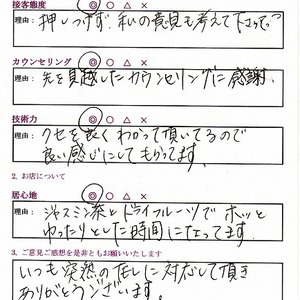 接客態度 ◎ ○ △ ×
理由: 押しつけず 私の意見も考えて下さって
カウンセリング ◎ ○ △ ×
理由: 先を見越したカウンセリングに感謝
技術力 ◎ ○ △ ×
理由: クセを良くわかって頂いてるので
良い感じにしてもらってます。
2, お店について
居心地 ◎ ○ △ ×
理由: ジャスミン茶とドライフルーツでホッと
ゆったりとした時間になってます。
3, ご意見ご感想を是非ともお願いいたします
いつも突然の
に対応して頂き
ありがとうございます。